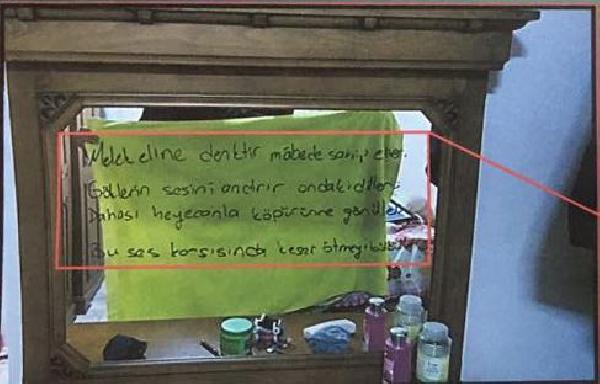 Melek eline denktir mâbede sahip eller.
Göklerin sesini andırır ondaki diller
Dahası heyecanla köpürünce gönüller
Bu ses karşısında keser ötmeyi